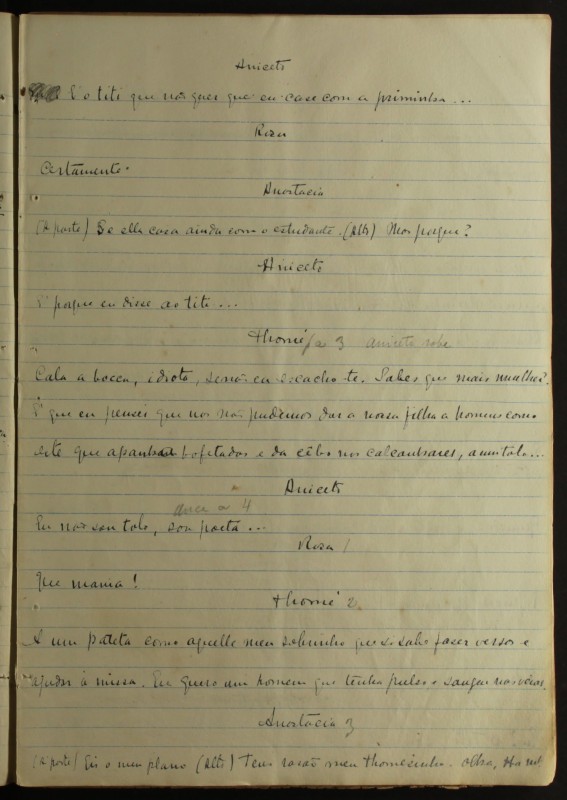 Aniceto
É o titi que não quer que eu case com a priminha...
Rosa
Certamente.
Anastacia
(Á parte) Se ella casa ainda com o estudante. (Alto) Mas porque?
Aniceto
É porque eu disse ao titi...
Thomé (a 3 aniceto sobe
Cala a bocca, idiota, senão eu escacho-te. Sabes que mais mulher?
É que eu pensei que nós não podemos dar a nossa filha a homens como
este que apanham bofetadas e da cêbo nos calcanhares, a um tolo...
Aniceto
desce a 4
Eu não sou tolo, sou poeta...
Rosa 1
Que mania!
Thomé 2
A um pateta como aquelle meu sobrinho que só sabe fazer versos e
ajudar á missa. Eu quero um homem que tenha pulso e sangue nas veias.
Anastacia 3
(Á parte) Eis o meu plano (Alto) Tens rasão meu Thomésinho. Olha,